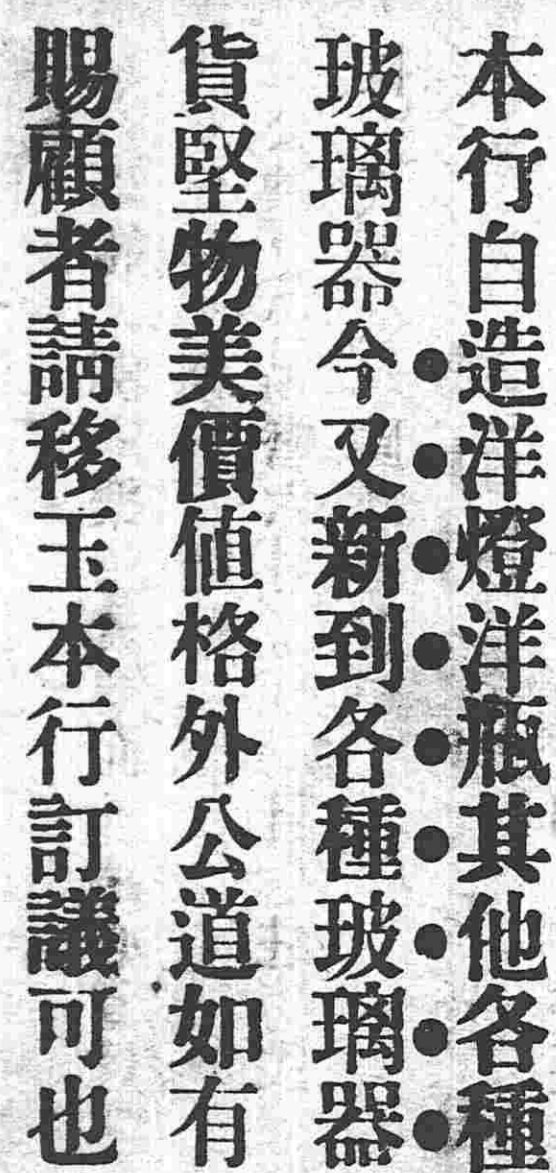 本行自造洋燈洋瓶其他各種
玻璃器今又新到各種玻璃器
貨堅物美價値格外公道如有
賜顧者請移玉本行訂議可也